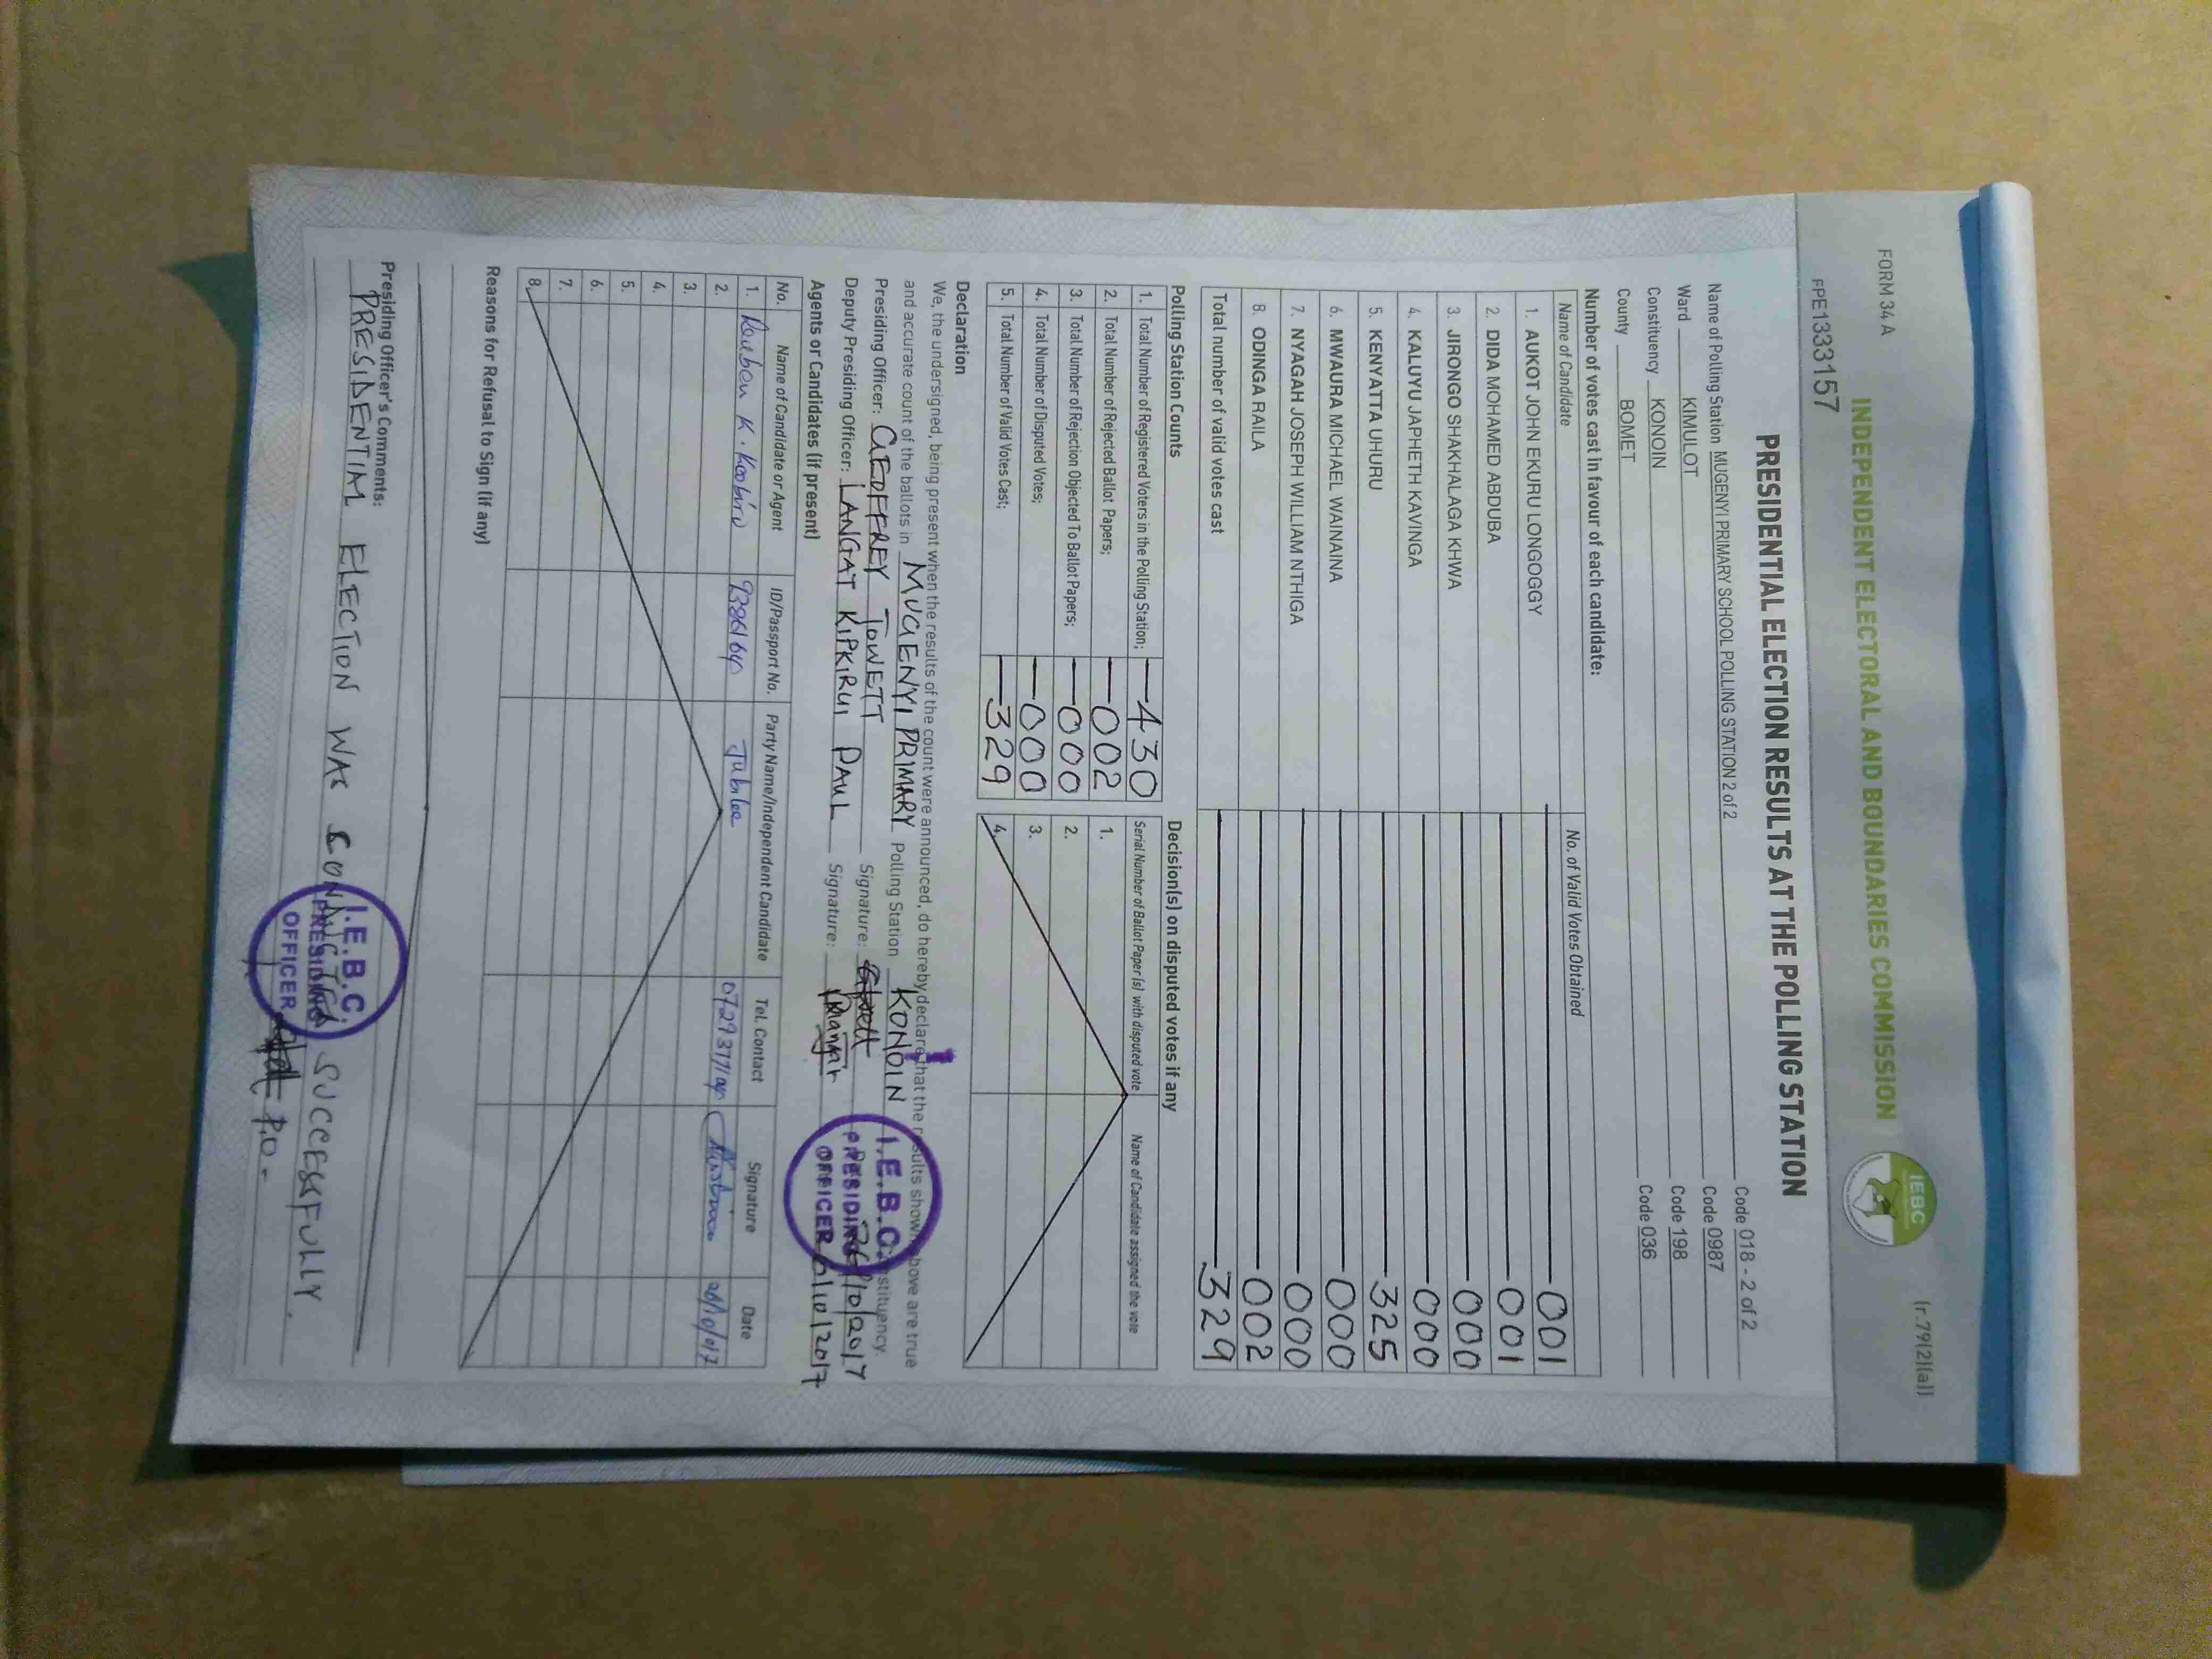 FORM 34 A
(r.79(2)(a))
INDEPENDENT ELECTORAL AND BOUNDARIES COMMISSION
IEBC
FPE1333157
PRESIDENTIAL ELECTION RESULTS AT THE POLLING STATION
Name of Polling Station MUGENYI PRIMARY SCHOOL POLLING STATION 2 of 2 Code 018 - 2 of 2
Ward KIMULOT Code 0987
Constituency KONOIN Code 198
County BOMET Code 036
Number of votes cast in favour of each candidate:
Name of Candidate No. of Valid Votes Obtained
1. AUKOT JOHN EKURU LONGOGGY 001
2. DIDA MOHAMED ABDUBA 001
3. JIRONGO SHAKHALAGA KHWA 000
4. KALUYU JAPHETH KAVINGA 000
5. KENYATTA UHURU 325
6. MWAURA MICHAEL WAINAINA 000
7. NYAGAH JOSEPH WILLIAM NTHIGA 000
8. ODINGA RAILA 002
Total number of valid votes cast 329
Polling Station Counts
1. Total Number of Registered Voters in the Polling Station; 430
2. Total Number of Rejected Ballot Papers; 002
3. Total Number of Rejection Objected To Ballot Papers; 000
4. Total Number of Disputed Votes; 000
5. Total Number of Valid Votes Cast; 329
Decision(s) on disputed votes if any
Serial Number of Ballot Paper (s) with disputed vote Name of Candidate assigned the vote
1.
2.
3.
4.
Declaration
We, the undersigned, being present when the results of the count were announced, do hereby declare that the results shown above are true
and accurate count of the ballots in MUGENYI PRIMARY Polling Station KONOIN Constituency.
Presiding Officer: GEOFFREY TOWETT Signature: 26/10/2017
Deputy Presiding Officer: LANGAT KIPKIRUI PAUL Signature: /10/2017
I.E.B.C.
PRESIDING
OFFICER
Agents or Candidates (if present)
No. Name of Candidate or Agent ID/Passport No. Party Name/Independent Candidate Tel. Contact Signature Date
1. Reuben K. Jubilee
2.
3.
4.
5.
6.
7.
8.
Reasons for Refusal to Sign (if any)
Presiding Officer's Comments:
PRESIDENTIAL ELECTION WAS CONDUCTED SUCCESSFULLY.
P.O.
I.E.B.C.
PRESIDING
OFFICER